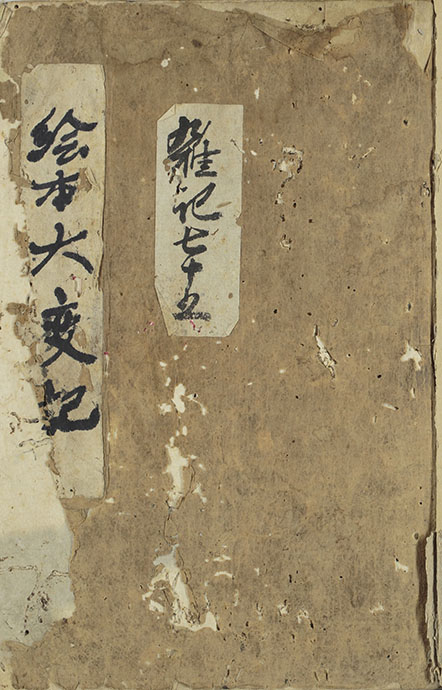 雑記七十五
絵本大変記